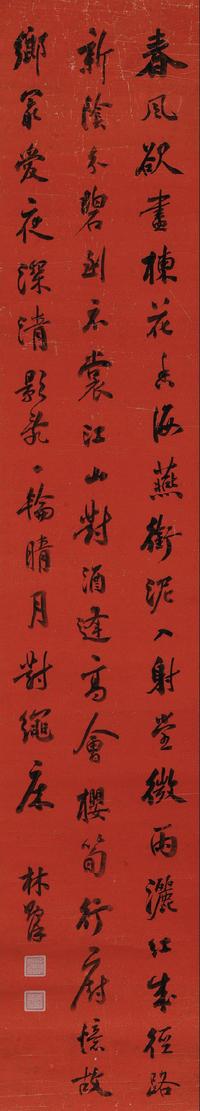 春風欲盡楝花香海燕銜泥入射堂微雨灑紅成徑路
新陰分碧到衣裳江山對酒逢高會櫻筍行廚憶故
鄉最愛夜深清影亂一輪晴月對繩床
林